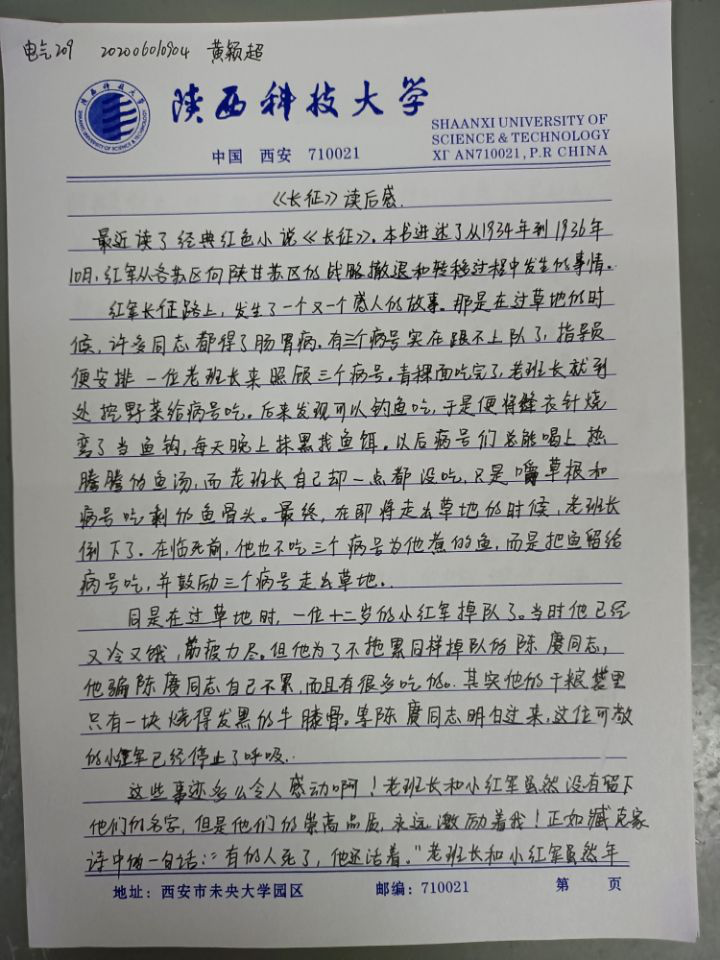 电气209 202006010904 黄颖超
陕西科技大学
SHAANXI UNIVERSITY OF
SCIENCE & TECHNOLOGY
中国 西安 710021
XI' AN710021, P.R CHINA
《长征》读后感.
最近读了经典红色小说《长征》。本书讲述了从1934年到1936年
10月,红军从各苏区向陕甘苏区的战略撤退和转移过程中发生的事情。
红军长征路上,发生了一个又一个感人的故事。那是在过草地的时
候,许多同志都得了肠胃病。有三个病号实在跟不上队了,指导员
便安排一位老班长来照顾三个病号。青稞面吃完了,老班长就到
处挖野菜给病号吃。后来发现可以钓鱼吃,于是便将缝衣针烧
弯了当鱼钩,每天晚上抹黑找鱼饵。以后病号们总能喝上热
腾腾的鱼汤,而老班长自己却一点都没吃,只是嚼草根和
病号吃剩的鱼骨头。最终,在即将走出草地的时候,老班长
倒下了。在临死前,他也不吃三个病号为他煮的鱼,而是把鱼留给
病号吃,并鼓励三个病号走出草地。
同是在过草地时,一位十二岁的小红军掉队了。当时他已经
又冷又饿,筋疲力尽。但他为了不拖累同样掉队的陈赓同志,
他骗陈赓同志自己不累,而且有很多吃的。其实他的干粮袋里
只有一块烧得发黑的牛膝骨。等陈赓同志明白过来,这位可敬
的小红军已经停止了呼吸。
这些事迹多么令人感动啊!老班长和小红军虽然没有留下
他们的名字,但是他们的崇高品质,永远激励着我!正如臧克家
诗中的一句话:"有的人死了,他还活着。"老班长和小红军虽然年
地址:西安市未央大学园区 邮编:710021 第 页